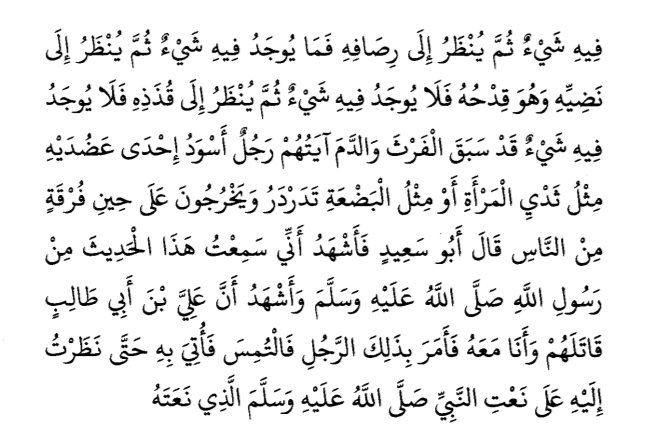 فِيهِ شَيْءٌ ثُمَّ يُنْظَرُ إِلَى رِصَافِهِ فَمَا يُوجَدُ فِيهِ شَيْءٌ ثُمَّ يُنْظَرُ إِلَى
نَضِيِّهِ وَهُوَ قِدْحُهُ فَلَا يُوجَدُ فِيهِ شَيْءٌ ثُمَّ يُنْظَرُ إِلَى قُذَذِهِ فَلَا يُوجَدُ
فِيهِ شَيْءٌ قَدْ سَبَقَ الْفَرْثَ وَالدَّمَ آيَتُهُمْ رَجُلٌ أَسْوَدُ إِحْدَى عَضُدَيْهِ
مِثْلُ ثَدْيِ الْمَرْأَةِ أَوْ مِثْلُ الْبَضْعَةِ تَدَرْدَرُ وَيَخْرُجُونَ عَلَى حِينِ فُرْقَةٍ
مِنْ النَّاسِ قَالَ أَبُو سَعِيدٍ فَأَشْهَدُ أَنِّي سَمِعْتُ هَذَا الْحَدِيثَ مِنْ
رَسُولِ اللَّهِ صَلَّى اللَّهُ عَلَيْهِ وَسَلَّمَ وَأَشْهَدُ أَنَّ عَلِيَّ بْنَ أَبِي طَالِبٍ
قَاتَلَهُمْ وَأَنَا مَعَهُ فَأَمَرَ بِذَلِكَ الرَّجُلِ فَالْتُمِسَ فَأُتِيَ بِهِ حَتَّى نَظَرْتُ
إِلَيْهِ عَلَى نَعْتِ النَّبِيِّ صَلَّى اللَّهُ عَلَيْهِ وَسَلَّمَ الَّذِي نَعَتَهُ